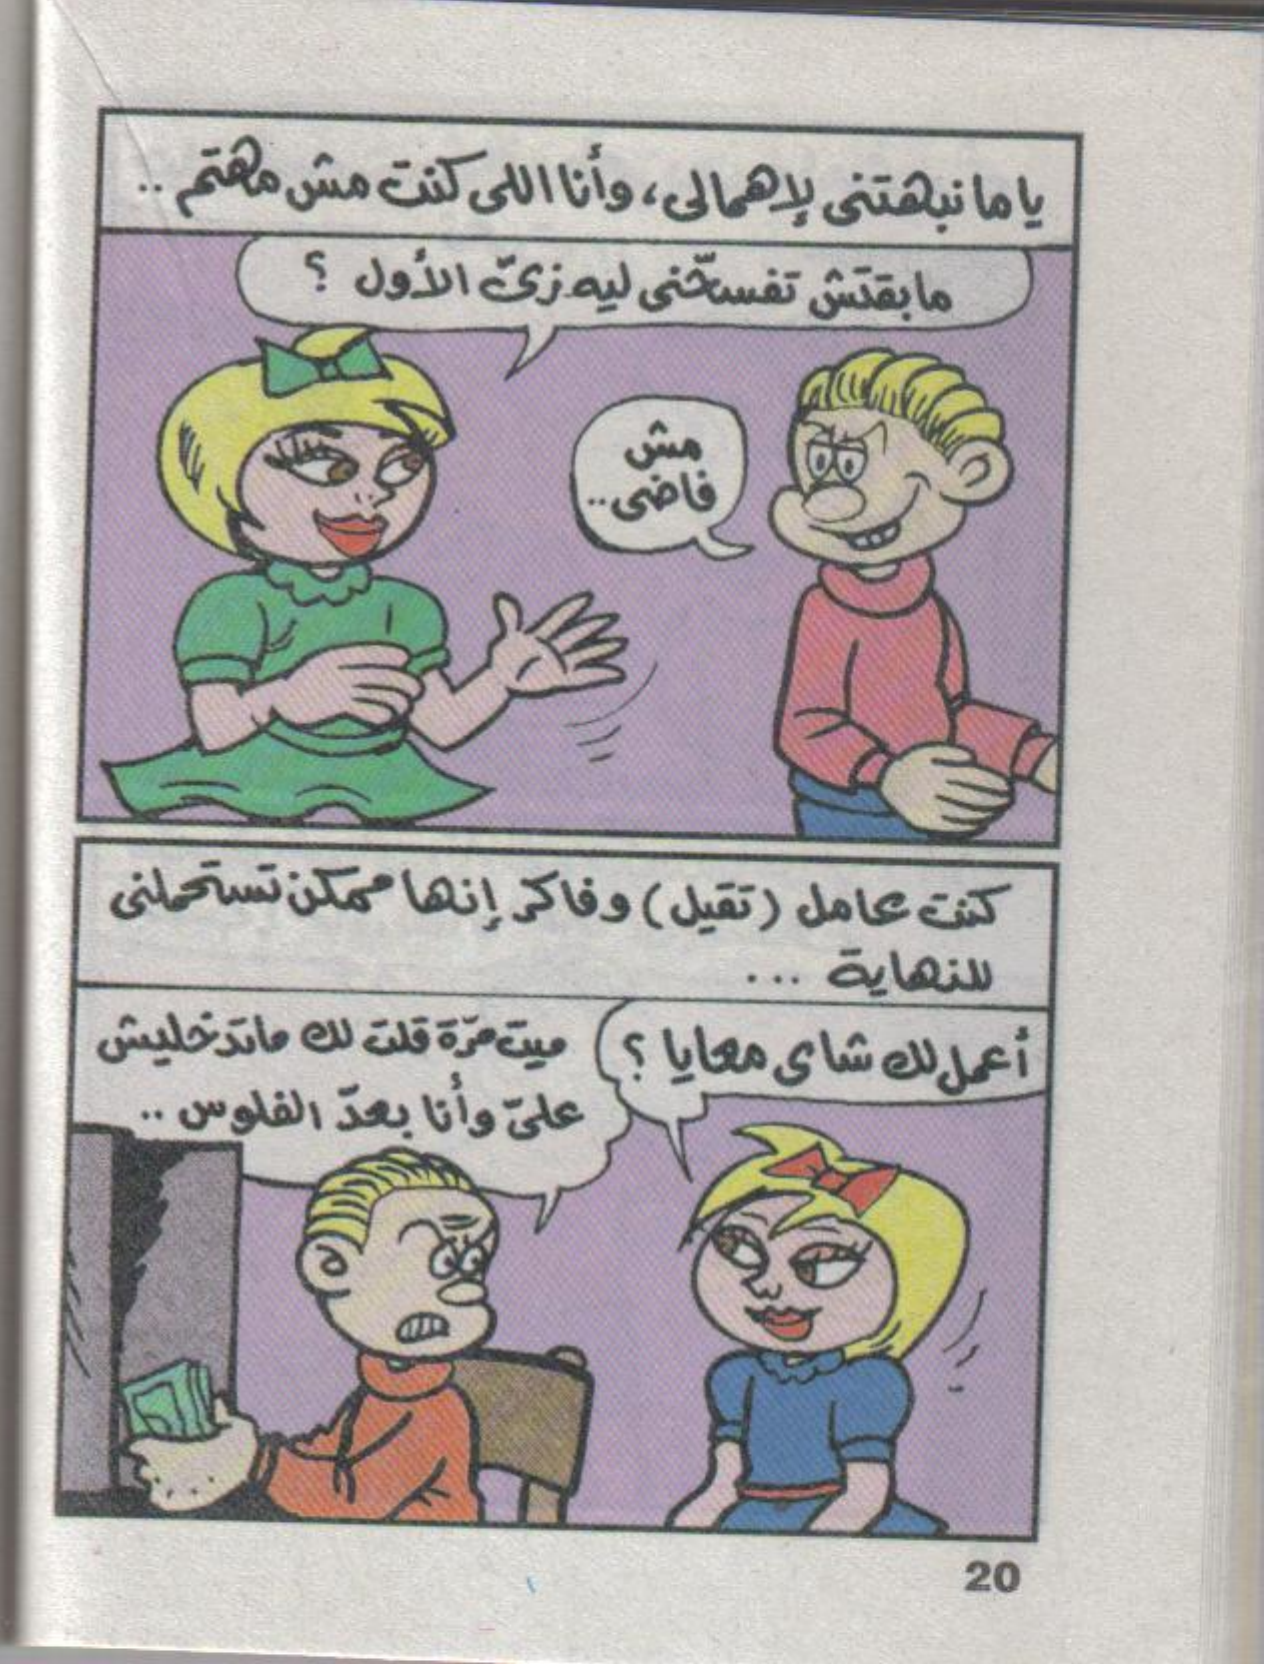 ياما نبهتنى لإهمالى، وأنا اللى كنت مش مهتم ..
ما بقتش تفسّحنى ليه زىّ الأول ؟
مش
فاضى ..
كنت عامل (تقيل) وفاكر إنها ممكن تستحملنى
للنهاية ...
أعمل لك شاى معايا ؟
ميت مرّة قلت لك ماتدخليش
علىّ وأنا بعدّ الفلوس ..
20